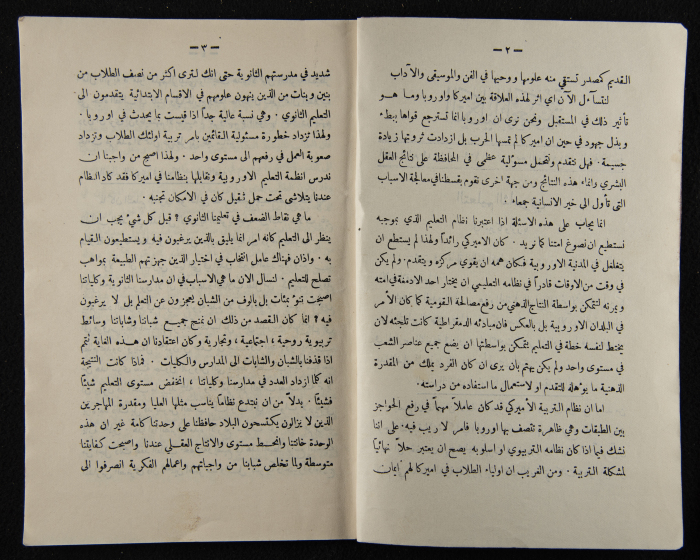 — ٢ —
القديم كمصدر تستقي منه علومها ووحيها في الفن والموسيقى والآداب
لنتساءل الآن اي اثر لهذه العلاقة بين اميركا واوروبا وما هو
تأثير ذلك في المستقبل ونحن نرى ان اوروبا تسترجع قواها ببطء
وبذل جهود في حين ان اميركا لم تمسها الحرب بل ازدادت ثروتها زيادة
جسيمة . فهل تتقدم وتتحمل مسؤلية عظمى في المحافظة على نتائج العقل
البشري وانماء هذه النتائج ومن جهة اخرى نقوم بقسطنا في معالجة الاسباب
التي تأول الى خير الانسانية جمعاء .
انما يجاب على هذه الاسئلة اذا اعتبرنا نظام التعليم الذي بموجبه
نستطيع ان نصوغ امتنا كما نريد . كان الاميركي رائداً ولهذا لم يستطع ان
يتغلغل في المدنية الاوروبية فكان همه ان يقوي مركزه ويتقدم . ولم يكن
في وقت من الاوقات قادراً في نظامه التعليمي ان يختار احد الادمغة في امته
ويمرنه لنتمكن بواسطة النتاج الذهني من رفع مصالحنا القومية كما كان الأمر
في البلدان الاوروبية بل بالعكس فان مبادئه الدمقراطية كانت تلجئه لان
يختط لنفسه خطة في التعليم يتمكن بواسطتها ان يضع جميع عناصر الشعب
في مستوى واحد ولم يكن يهتم بان يرى ان كان الفرد يملك من المقدرة
الذهنية ما يؤهله للتقدم او لاستعمال ما استفاده من دراسته .
اما ان نظام التربية الأميركي قد كان عاملاً مهماً في رفع الحواجز
بين الطبقات وهي ظاهرة تتصف بها اوروبا فامر لا ريب فيه . على اننا
نشك فيما اذا كان نظامه التربيوي او اسلوبه يصح ان يعتبر حلاً نهائياً
لمشكلة التربية . ومن الغريب ان اولياء الطلاب في اميركا لهم ايمان
— ٣ —
شديد في مدرستهم الثانوية حتى انك لترى اكثر من نصف الطلاب من
بنين وبنات من الذين ينهون علومهم في الاقسام الابتدائية يتقدمون الى
التعليم الثانوي . وهي نسبة عالية جداً اذا قيست بما يحدث في اوروبا .
ولهذا تزداد خطورة مسئولية القائمين بامر تربية اولئك الطلاب وتزداد
صعوبة العمل في رفعهم الى مستوى واحد . ولهذا اصبح من واجبنا ان
ندرس انظمة التعليم الاوروبية ونقابلها بنظامنا في اميركا فقد كاد النظام
عندنا يتلاشى تحت حمل ثقيل كان في الامكان تجنبه .
ما هي نقاط الضعف في تعليمنا الثانوي ؟ قبل كل شيء يجب ان
ينظر الى التعليم كانه امر انما يليق بالذين يرغبون فيه ويستطيعون القيام
به . واذان فهناك عامل انتخاب في اختيار الذين جهزتهم الطبيعة بمواهب
تصلح للتعليم . لنسال الان ما هي الاسباب في ان مدارسنا الثانوية وكلياتنا
اصبحت تنوء بمئات بل بالوف من الشبان يعجزون عن التعلم بل لا يرغبون
فيه ؟ انما كان القصد من ذلك ان نمنح جميع شباننا وشاباتنا وسائط
تربيوية روحية ، اجتماعية ، وتجارية وكان اعتقادنا ان هذه الغاية تتم
اذا قذفنا بالشبان والشابات الى المدارس والكليات . فماذا كانت النتيجة
انه كما ازداد العدد في مدارسنا وكلياتنا ، انخفض مستوى التعليم شيئاً
فشيئاً . بدلاً من ان نبتدع نظاماً يناسب مثلها العليا ومقدرة المهاجرين
الذين لا يزالون يكتسحون البلاد حافظنا على وحدتنا كامة غير ان هذه
الوحدة خانتنا وانحط مستوى والانتاج العقلي عندنا واصبحت كفايتنا
متوسطة ولما تخلص شبابنا من واجباتهم واعمالهم الفكرية انصرفوا الى